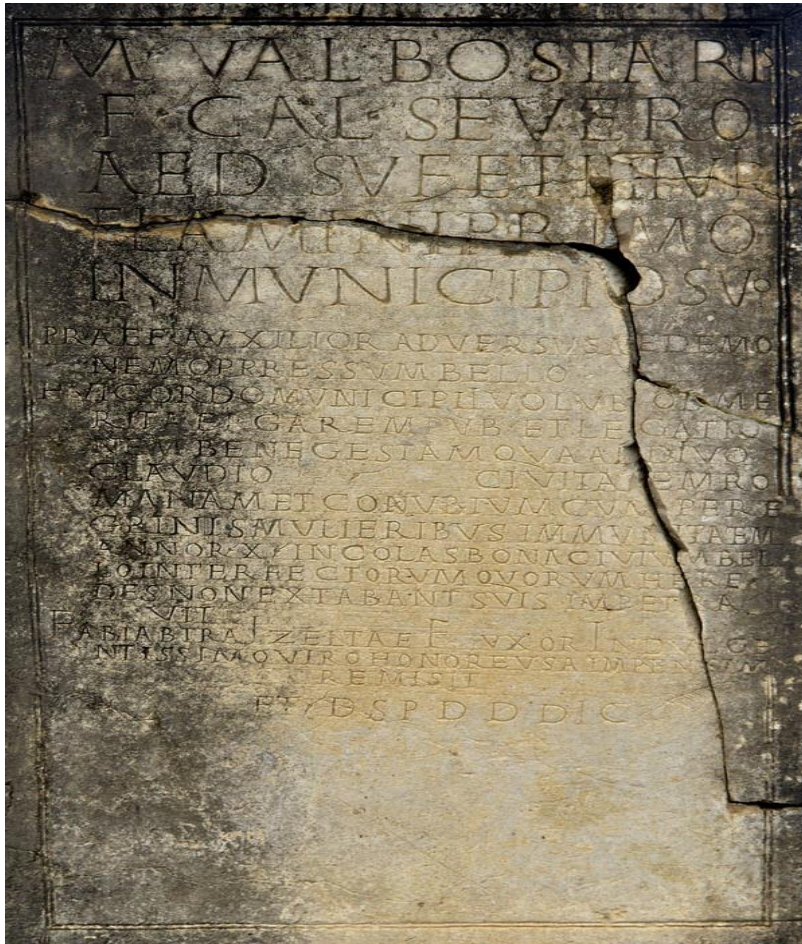 M · VAL BOSTARIS
F · CAL · SEVERO
AED SVFETI IIVIR
FLAMINI PRIMO
IN MVNICIPIO SVO
PRAEF AVXILIOR ADVERSVS AEDEMO
NEM OPPRESSVM BELLO
HVIC ORDO MVNICIPII VOLVB OB ME
RITA ERGA REM PVB ET LEGATIO
NEM BENE GESTAM QVA AB DIVO
CLAVDIO CIVITATEM RO
MANAM ET CONVBIVM CVM PERE
GRINIS MVLIERIBVS IMMVNITATEM
ANNOR X INCOLAS BONA CIVIVM BEL
LO INTERFECTORVM QVORVM HERE
DES NON EXTABANT SVIS IMPETRA
VIT
FABIA BIRA IZELTAE F VXOR INDVLGE
NTISSIMO VIRO HONORE VSA IMPENSAM
REMISIT
ET D S P D D DIC